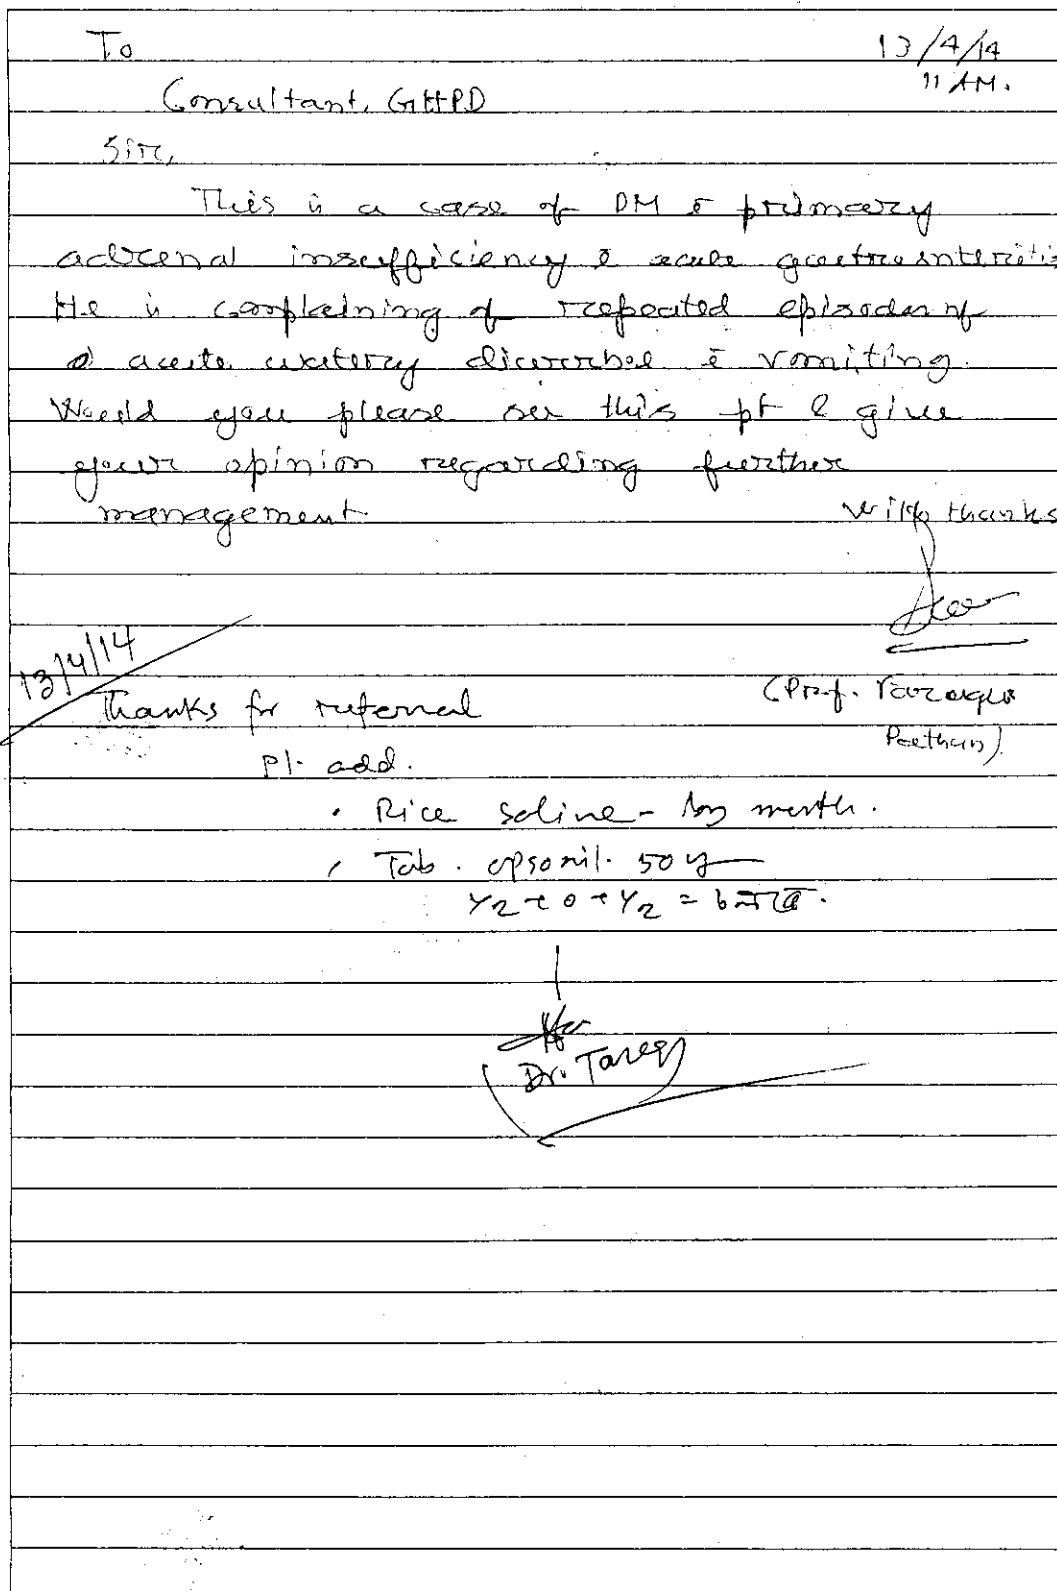 To
13/4/14
11 AM.
Consultant, GHPD
Sir,
This is a case of DM c̄ primary
adrenal insufficiency c̄ acute gastroenteritis
He is complaining of repeated episodes of
acute watery diarrhoea c̄ vomiting.
Would you please see this pt & give
your opinion regarding further
management
with thanks
(Prof. Faruque
Pathan)
13/4/14
Thanks for referral
Pl. add.
• Rice saline - by mouth.
• Tab. opsonil. 50
½ + 0 + ½ =
Dr. Tareq